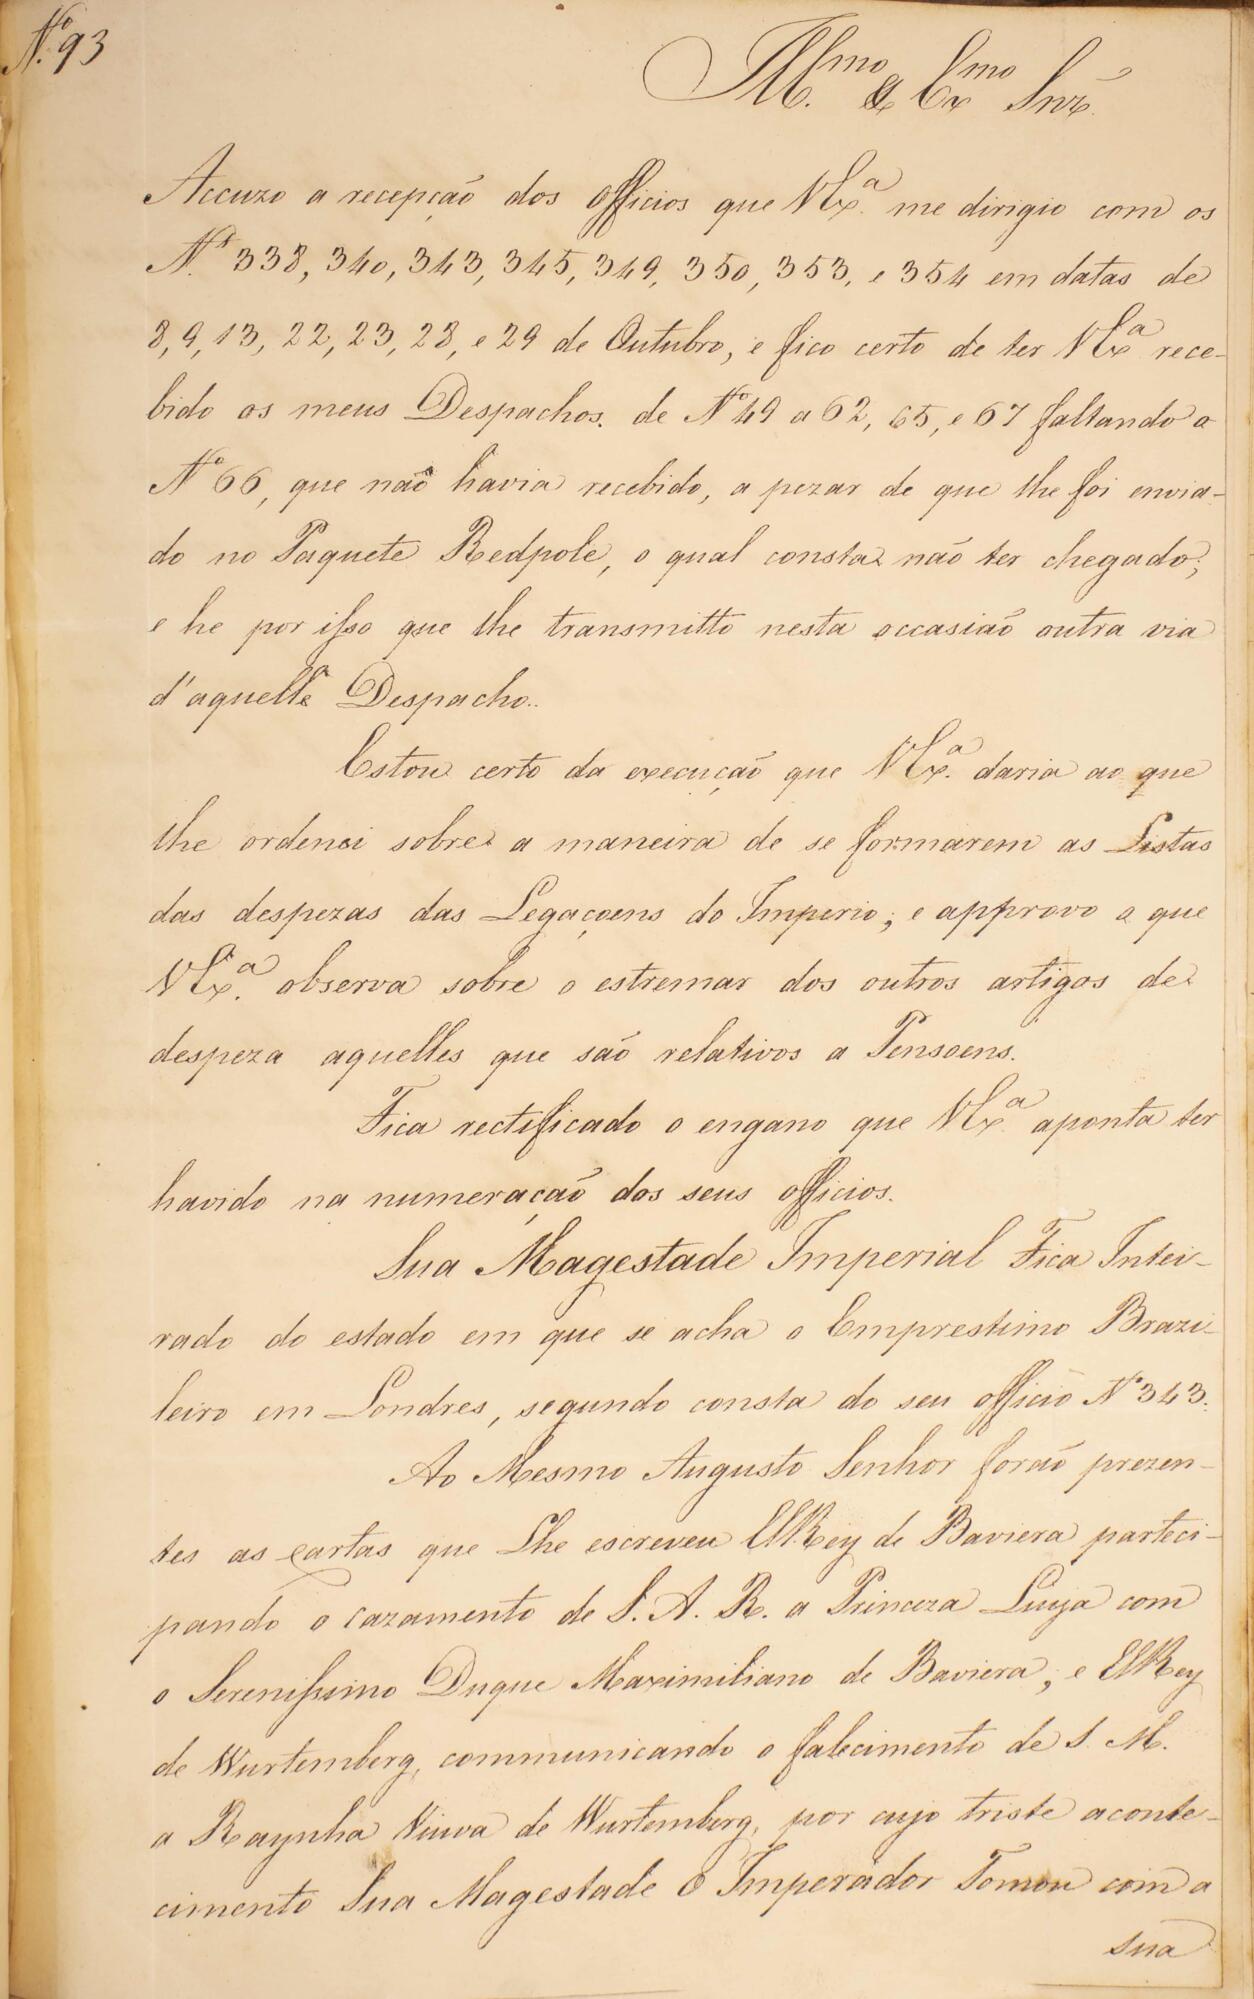 Nº 93
Illmo. & Exmo. Snr.
Accuzo a recepção dos officios que V Exª. me dirigio com os
Nos. 338, 340, 343, 345, 349, 350, 353, e 354 em datas de
8, 9, 13, 22, 23, 28, e 29 de Outubro, e fico certo de ter V Exª rece-
bido os meus Despachos. de Nº 49 a 62, 65, e 67 faltando o
Nº 66, que não havia recebido, a pezar de que lhe foi envia-
do no Paquete Redpole, o qual consta não ter chegado;
e he por isso que lhe transmitto nesta occasião outra via
d'aquelle Despacho..
Estou certo da execução que V Exª. daria ao que
lhe ordenei sobre a maneira de se formarem as Listas
das despezas das Legaçoens do Imperio; e approvo o que
V Exª. observa sobre o estremar dos outros artigos de
despeza aquelles que são relativos a Pensoens.
Fica rectificado o engano que V Exª aponta ter
havido na numeração dos seus officios.
Sua Magestade Imperial Fica Intei-
rado do estado em que se acha o Emprestimo Brazi-
leiro em Londres, segundo consta do seu officio Nº 343.
Ao Mesmo Augusto Senhor forão prezen-
tes as cartas que Lhe escreveu ElRey de Baviera parteci-
pando o cazamento de S. A. R. a Princeza Luiza com
o Serenissimo Duque Maximiliano de Baviera; e ElRey
de Wurtemberg, communicando o falecimento de S. M.
a Raynha Viuva de Wurtemberg, por cujo triste aconte-
cimento Sua Magestade O Imperador Tomou com a
sua